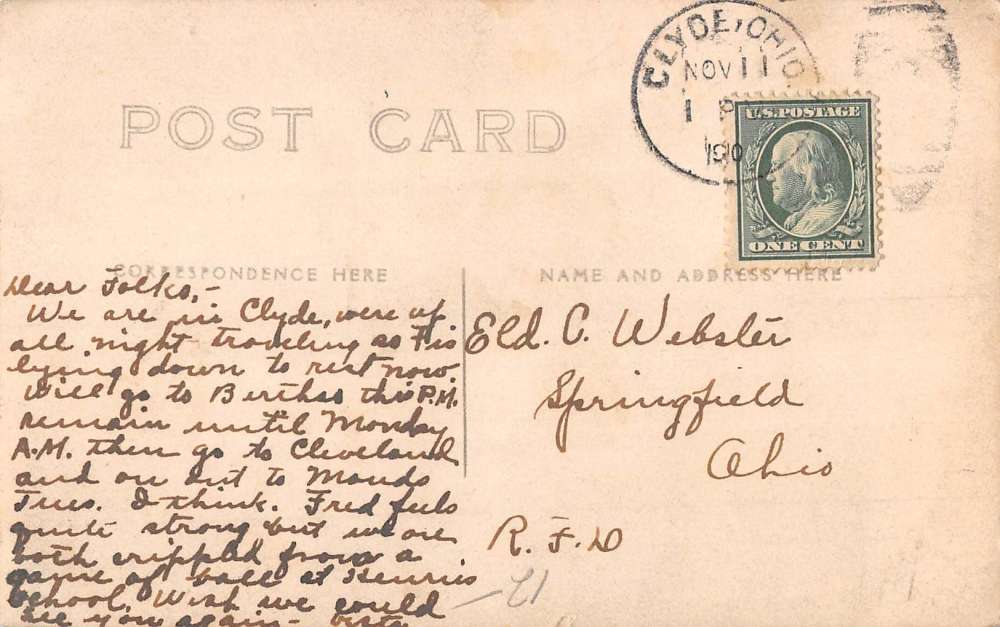 CLYDE, OHIO
NOV 11
1 P
1910
U.S. POSTAGE
ONE CENT
POST CARD
CORRESPONDENCE HERE
NAME AND ADDRESS HERE
Dear Folks,-
We are in Clyde, were up
all night traveling so F is
lying down to rest now.
Will go to Berthas this P.M.
remain until Monday
A.M. then go to Cleveland
and on out to Mauds
Tues. I think. Fred feels
quite strong but we are
both crippled from a
game of ball at Henries
School. Wish we could
see you again-
Eld. C. Webster
Springfield
Ohio
R.F.D